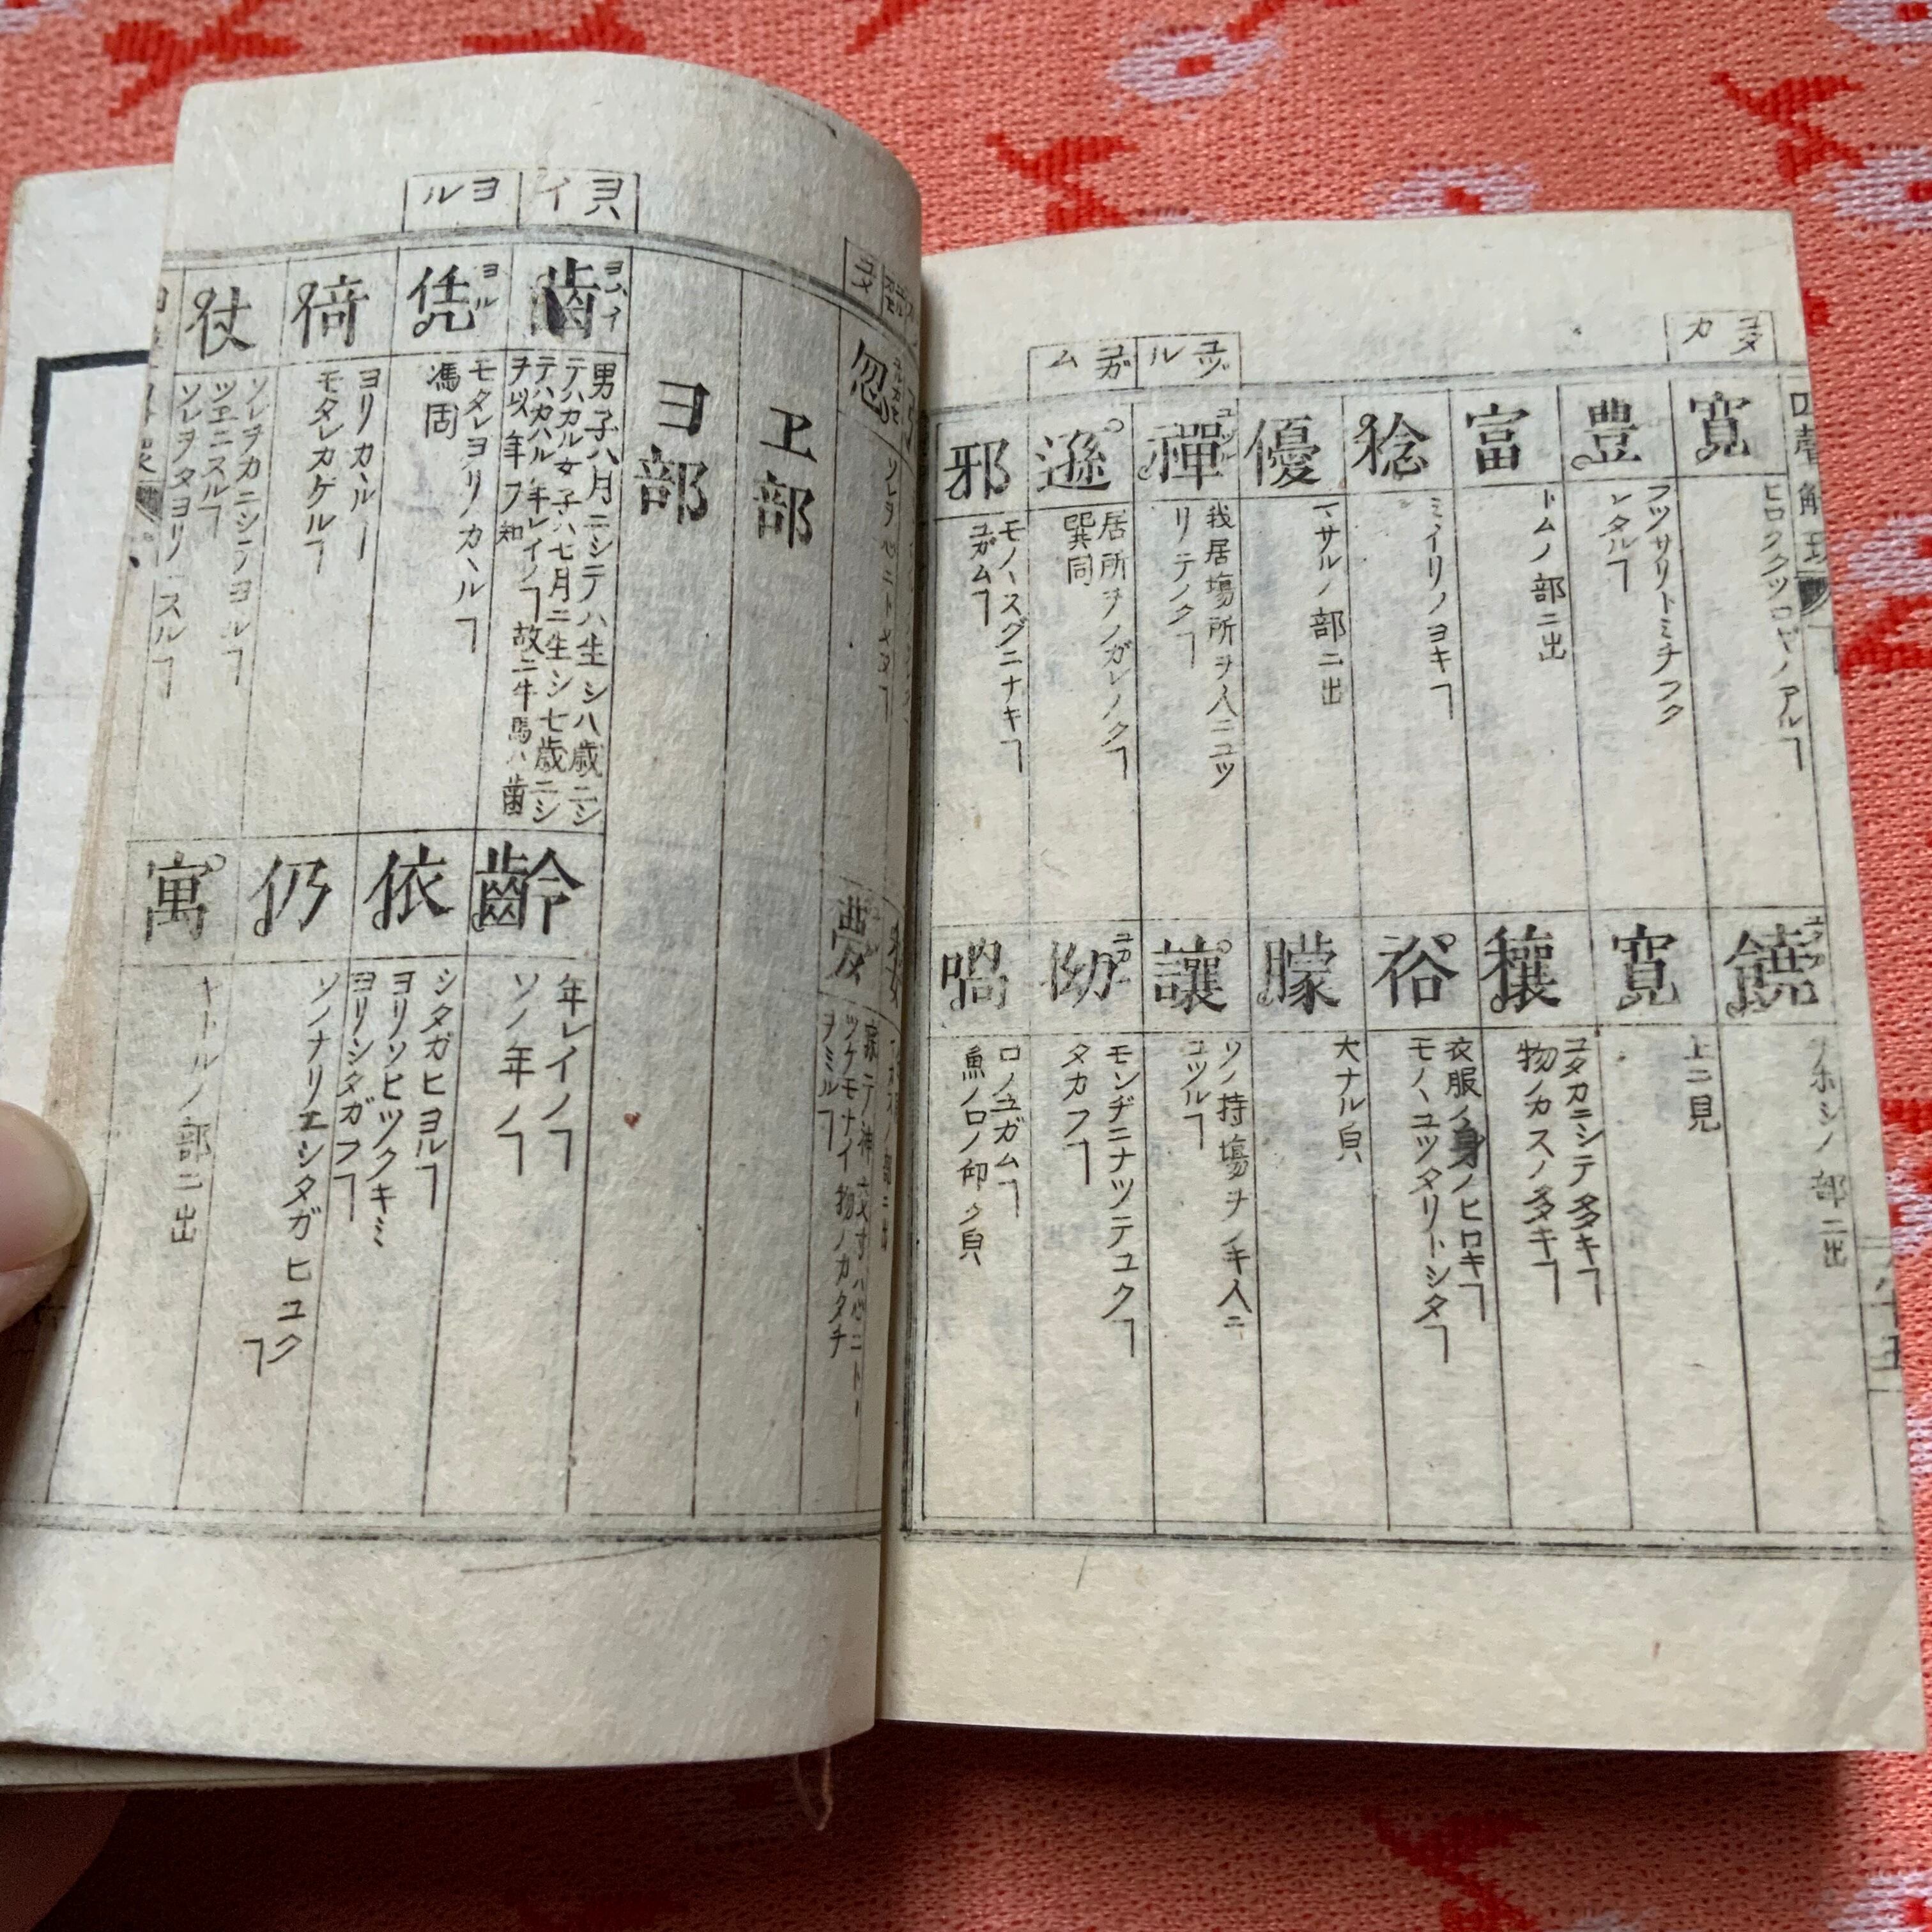 ユタカ
寛
ヒロククツロギノアルヿ
豊
フツサリトミチフク
レタルヿ
富
トムノ部ニ出
稔
ミイリノヨキヿ
優
マサルノ部ニ出
ユヅル
禪
我居塲所ヲ人ニユツ
リテノクヿ
遜
居所ヲノガレノクヿ
巽同
ユガム
邪
モノヽスグニナキヿ
ユガムヿ
饒
部ニ出
寛
上ニ見
穰
ユタカニシテ多キヿ
物ノカスノ多キヿ
裕
衣服ノ身ノヒロキヿ
モノヽユツタリトシタヿ
朦
大ナル皃
讓
ソノ持塲ヲノキ人ニ
ユツルヿ
拗
モンヂニナツテユク
タカフヿ
喎
口ノユガムヿ
魚ノ口ノ仰ク皃
忽
夢
ヲミルヿ
ヱ部
ヨ部
ヨハイ
齒
ヨハイ
男子ハ八月ニシテハ生シ八歳ニシ
テハカル女子ハ七月ニ生シ七歳ニシ
テハカハル年レイノヿ故ニ牛馬ハ齒
ヲ以年フ知
ヨル
凭
ヨル
モタレヨリカヽルヿ
馮同
倚
ヨリカヽルー
モタレカケルヿ
仗
ソレヲカニシテヨルヿ
ツエニスルヿ
ソレヲタヨリニスルヿ
齡
年レイノヿ
ソノ年ノヿ
依
シタガヒヨルヿ
ヨリソヒツクキミ
ヨリシタガフヿ
仍
ソンナリエシタガヒユク
ヿ
寓
ヤトルノ部ニ出